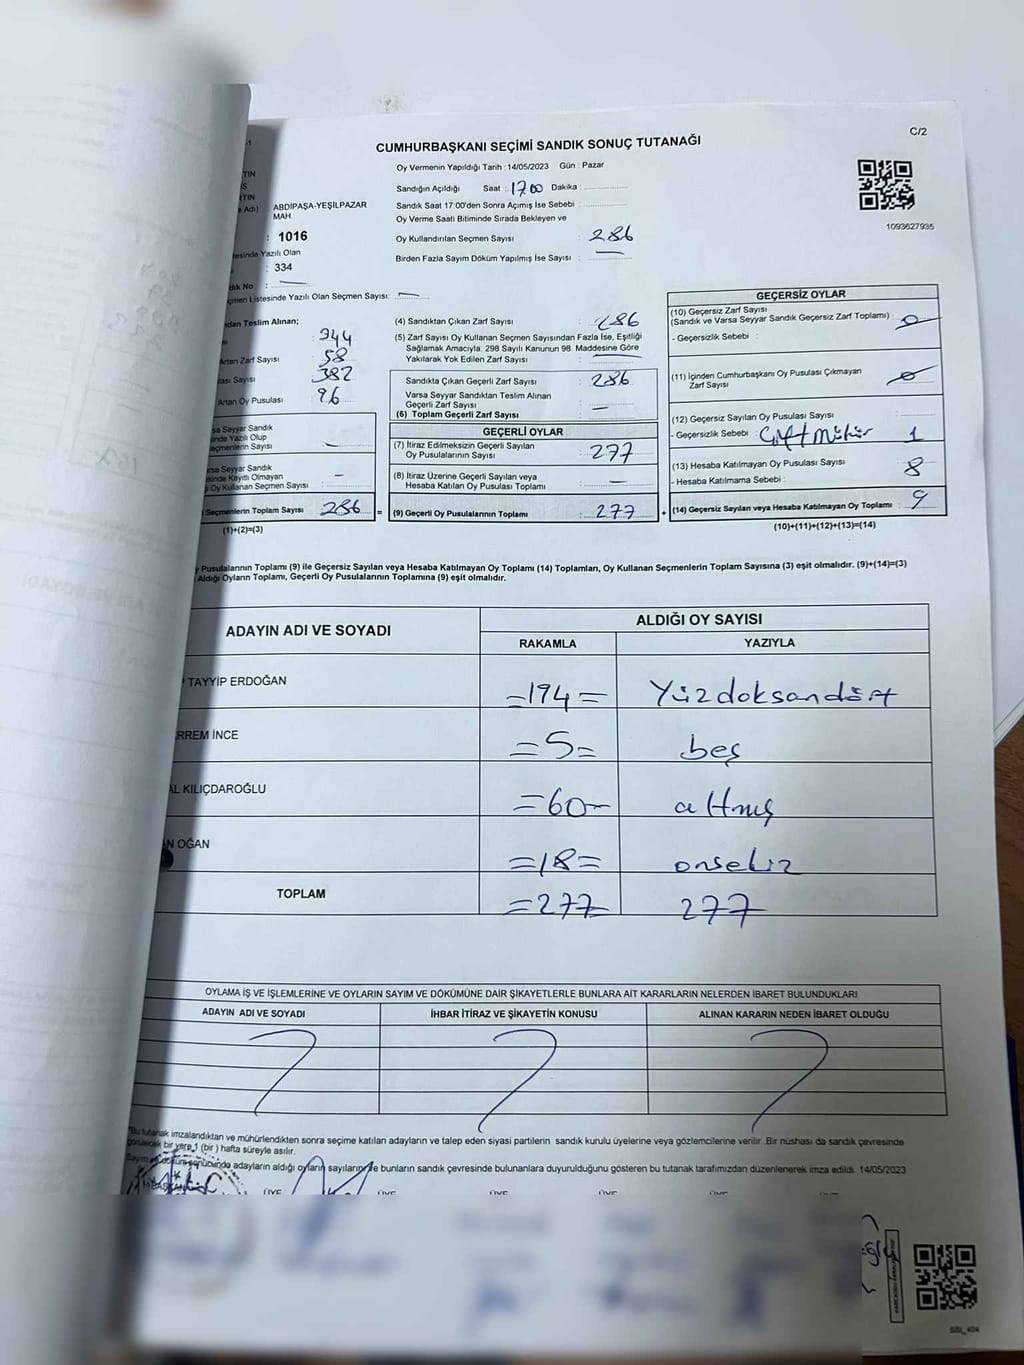 C/2
CUMHURBAŞKANI SEÇİMİ SANDIK SONUÇ TUTANAĞI
Oy Vermenin Yapıldığı Tarih : 14/05/2023 Gün : Pazar
Sandığın Açıldığı Saat : 17.00 Dakika :
Sandık Saat 17:00'den Sonra Açımış İse Sebebi :
Oy Verme Saati Bitiminde Sırada Bekleyen ve
Oy Kullandırılan Seçmen Sayısı : 286
Birden Fazla Sayım Döküm Yapılmış İse Sayısı : —
1093627935
TIN
TIN
Adı) ABDİPAŞA-YEŞİLPAZAR
MAH.
: 1016
esinde Yazılı Olan
: 334
dık No : —
çmen Listesinde Yazılı Olan Seçmen Sayısı: —
dan Teslim Alınan;
: 344
Artan Zarf Sayısı : 58
ası Sayısı : 382
Artan Oy Pusulası : 96
sa Seyyar Sandık
inde Yazılı Olup
eçmenlerin Sayısı : —
rsa Seyyar Sandık
sinde Kayıtlı Olmayan
Oy Kullanan Seçmen Sayısı : —
Seçmenlerin Toplam Sayısı 286 =
(1)+(2)=(3)
(4) Sandıktan Çıkan Zarf Sayısı : 286
(5) Zarf Sayısı Oy Kullanan Seçmen Sayısından Fazla İse, Eşitliği
Sağlamak Amacıyla, 298 Sayılı Kanunun 98. Maddesine Göre
Yakılarak Yok Edilen Zarf Sayısı : —
Sandıkta Çıkan Geçerli Zarf Sayısı : 286
Varsa Seyyar Sandıktan Teslim Alınan
Geçerli Zarf Sayısı : —
(6) Toplam Geçerli Zarf Sayısı
GEÇERLİ OYLAR
(7) İtiraz Edilmeksizin Geçerli Sayılan
Oy Pusulalarının Sayısı : 277
(8) İtiraz Üzerine Geçerli Sayılan veya
Hesaba Katılan Oy Pusulası Toplamı : —
(9) Geçerli Oy Pusulalarının Toplamı : 277 +
GEÇERSİZ OYLAR
(10) Geçersiz Zarf Sayısı
(Sandık ve Varsa Seyyar Sandık Geçersiz Zarf Toplamı) : 0
- Geçersizlik Sebebi :
(11) İçinden Cumhurbaşkanı Oy Pusulası Çıkmayan
Zarf Sayısı : 0
(12) Geçersiz Sayılan Oy Pusulası Sayısı :
- Geçersizlik Sebebi : Çift Mühür 1
(13) Hesaba Katılmayan Oy Pusulası Sayısı : 8
- Hesaba Katılmama Sebebi :
(14) Geçersiz Sayılan veya Hesaba Katılmayan Oy Toplamı : 9
(10)+(11)+(12)+(13)=(14)
y Pusulalarının Toplamı (9) ile Geçersiz Sayılan veya Hesaba Katılmayan Oy Toplamı (14) Toplamları, Oy Kullanan Seçmenlerin Toplam Sayısına (3) eşit olmalıdır. (9)+(14)=(3)
Aldığı Oyların Toplamı, Geçerli Oy Pusulalarının Toplamına (9) eşit olmalıdır.
ADAYIN ADI VE SOYADI ALDIĞI OY SAYISI
RAKAMLA YAZIYLA
TAYYİP ERDOĞAN =194= Yüzdoksandört
RREM İNCE =5= beş
AL KILIÇDAROĞLU =60= altmış
N OĞAN =18= onsekiz
TOPLAM =277= 277
OYLAMA İŞ VE İŞLEMLERİNE VE OYLARIN SAYIM VE DÖKÜMÜNE DAİR ŞİKAYETLERLE BUNLARA AİT KARARLARIN NELERDEN İBARET BULUNDUKLARI
ADAYIN ADI VE SOYADI İHBAR İTİRAZ VE ŞİKAYETİN KONUSU ALINAN KARARIN NEDEN İBARET OLDUĞU
*Bu tutanak imzalandıktan ve mühürlendikten sonra seçime katılan adayların ve talep eden siyasi partilerin sandık kurulu üyelerine veya gözlemcilerine verilir. Bir nüshası da sandık çevresinde
görülecek bir yere 1 (bir) hafta süreyle asılır.
Sayım dökümü sonucunda adayların aldığı oyların sayılarını ve bunların sandık çevresinde bulunanlara duyurulduğunu gösteren bu tutanak tarafımızdan düzenlenerek imza edildi. 14/05/2023
BAŞKAN ÜYE ÜYE ÜYE ÜYE ÜYE